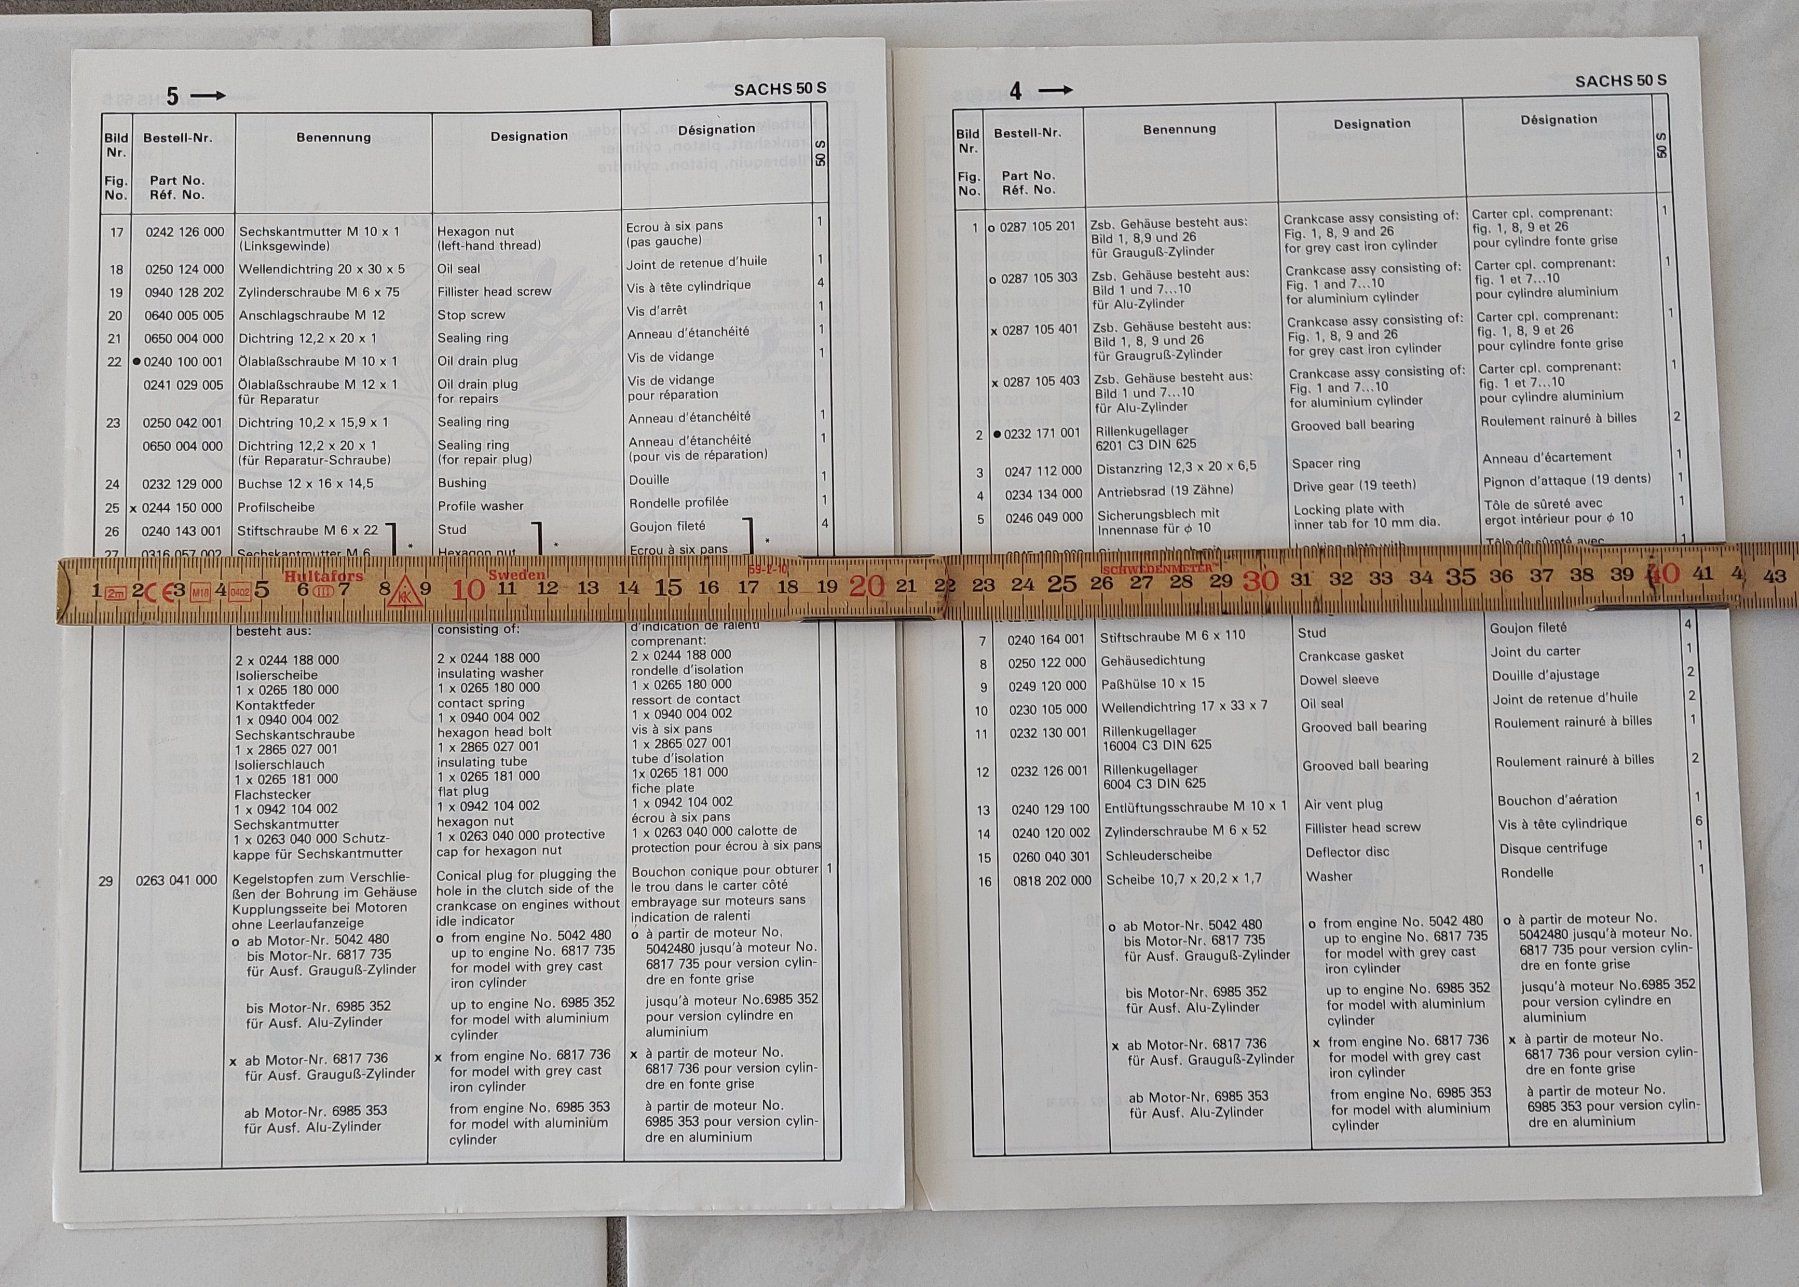 5 →
SACHS 50 S
Bild Nr. Bestell-Nr. Benennung Designation Désignation 50 S
Fig. No. Part No. Réf. No.
17 0242 126 000 Sechskantmutter M 10 x 1 Hexagon nut Ecrou à six pans 1
(Linksgewinde) (left-hand thread) (pas gauche)
18 0250 124 000 Wellendichtring 20 x 30 x 5 Oil seal Joint de retenue d'huile 1
19 0940 128 202 Zylinderschraube M 6 x 75 Fillister head screw Vis à tête cylindrique 4
20 0640 005 005 Anschlagschraube M 12 Stop screw Vis d'arrêt 1
21 0650 004 000 Dichtring 12,2 x 20 x 1 Sealing ring Anneau d'étanchéité 1
22 ●0240 100 001 Ölablaßschraube M 10 x 1 Oil drain plug Vis de vidange 1
0241 029 005 Ölablaßschraube M 12 x 1 Oil drain plug Vis de vidange
für Reparatur for repairs pour réparation
23 0250 042 001 Dichtring 10,2 x 15,9 x 1 Sealing ring Anneau d'étanchéité 1
0650 004 000 Dichtring 12,2 x 20 x 1 Sealing ring Anneau d'étanchéité 1
(für Reparatur-Schraube) (for repair plug) (pour vis de réparation)
24 0232 129 000 Buchse 12 x 16 x 14,5 Bushing Douille 1
25 x 0244 150 000 Profilscheibe Profile washer Rondelle profilée 1
26 0240 143 001 Stiftschraube M 6 x 22 * Stud * Goujon fileté * 4
27 0316 057 002 Sechskantmutter M 6 Hexagon nut Ecrou à six pans
besteht aus: consisting of: d'indication de ralenti
comprenant:
2 x 0244 188 000 2 x 0244 188 000 2 x 0244 188 000
Isolierscheibe insulating washer rondelle d'isolation
1 x 0265 180 000 1 x 0265 180 000 1 x 0265 180 000
Kontaktfeder contact spring ressort de contact
1 x 0940 004 002 1 x 0940 004 002 1 x 0940 004 002
Sechskantschraube hexagon head bolt vis à six pans
1 x 2865 027 001 1 x 2865 027 001 1 x 2865 027 001
Isolierschlauch insulating tube tube d'isolation
1 x 0265 181 000 1 x 0265 181 000 1x 0265 181 000
Flachstecker flat plug fiche plate
1 x 0942 104 002 1 x 0942 104 002 1 x 0942 104 002
Sechskantmutter hexagon nut écrou à six pans
1 x 0263 040 000 Schutz- 1 x 0263 040 000 protective 1 x 0263 040 000 calotte de
kappe für Sechskantmutter cap for hexagon nut protection pour écrou à six pans
29 0263 041 000 Kegelstopfen zum Verschlie- Conical plug for plugging the Bouchon conique pour obturer 1
ßen der Bohrung im Gehäuse hole in the clutch side of the le trou dans le carter côté
Kupplungsseite bei Motoren crankcase on engines without embrayage sur moteurs sans
ohne Leerlaufanzeige idle indicator indication de ralenti
o ab Motor-Nr. 5042 480 o from engine No. 5042 480 o à partir de moteur No.
bis Motor-Nr. 6817 735 up to engine No. 6817 735 5042480 jusqu'à moteur No.
für Ausf. Grauguß-Zylinder for model with grey cast 6817 735 pour version cylin-
iron cylinder dre en fonte grise
bis Motor-Nr. 6985 352 up to engine No. 6985 352 jusqu'à moteur No.6985 352
für Ausf. Alu-Zylinder for model with aluminium pour version cylindre en
cylinder aluminium
x ab Motor-Nr. 6817 736 x from engine No. 6817 736 x à partir de moteur No.
für Ausf. Grauguß-Zylinder for model with grey cast 6817 736 pour version cylin-
iron cylinder dre en fonte grise
ab Motor-Nr. 6985 353 from engine No. 6985 353 à partir de moteur No.
für Ausf. Alu-Zylinder for model with aluminium 6985 353 pour version cylin-
cylinder dre en aluminium
4 →
SACHS 50 S
Bild Nr. Bestell-Nr. Benennung Designation Désignation 50 S
Fig. No. Part No. Réf. No.
1 o 0287 105 201 Zsb. Gehäuse besteht aus: Crankcase assy consisting of: Carter cpl. comprenant: 1
Bild 1, 8,9 und 26 Fig. 1, 8, 9 and 26 fig. 1, 8, 9 et 26
für Grauguß-Zylinder for grey cast iron cylinder pour cylindre fonte grise
o 0287 105 303 Zsb. Gehäuse besteht aus: Crankcase assy consisting of: Carter cpl. comprenant: 1
Bild 1 und 7...10 Fig. 1 and 7...10 fig. 1 et 7...10
für Alu-Zylinder for aluminium cylinder pour cylindre aluminium
x 0287 105 401 Zsb. Gehäuse besteht aus: Crankcase assy consisting of: Carter cpl. comprenant: 1
Bild 1, 8, 9 und 26 Fig. 1, 8, 9 and 26 fig. 1, 8, 9 et 26
für Graugruß-Zylinder for grey cast iron cylinder pour cylindre fonte grise
x 0287 105 403 Zsb. Gehäuse besteht aus: Crankcase assy consisting of: Carter cpl. comprenant: 1
Bild 1 und 7...10 Fig. 1 and 7...10 fig. 1 et 7...10
für Alu-Zylinder for aluminium cylinder pour cylindre aluminium
2 ●0232 171 001 Rillenkugellager Grooved ball bearing Roulement rainuré à billes 2
6201 C3 DIN 625
3 0247 112 000 Distanzring 12,3 x 20 x 6,5 Spacer ring Anneau d'écartement 1
4 0234 134 000 Antriebsrad (19 Zähne) Drive gear (19 teeth) Pignon d'attaque (19 dents) 1
5 0246 049 000 Sicherungsblech mit Locking plate with Tôle de sûreté avec 1
Innennase für ϕ 10 inner tab for 10 mm dia. ergot intérieur pour ϕ 10
Locking plate with Tôle de sûreté avec 1
7 0240 164 001 Stiftschraube M 6 x 110 Stud Goujon fileté 4
8 0250 122 000 Gehäusedichtung Crankcase gasket Joint du carter 1
9 0249 120 000 Paßhülse 10 x 15 Dowel sleeve Douille d'ajustage 2
10 0230 105 000 Wellendichtring 17 x 33 x 7 Oil seal Joint de retenue d'huile 2
11 0232 130 001 Rillenkugellager Grooved ball bearing Roulement rainuré à billes 1
16004 C3 DIN 625
12 0232 126 001 Rillenkugellager Grooved ball bearing Roulement rainuré à billes 2
6004 C3 DIN 625
13 0240 129 100 Entlüftungsschraube M 10 x 1 Air vent plug Bouchon d'aération 1
14 0240 120 002 Zylinderschraube M 6 x 52 Fillister head screw Vis à tête cylindrique 6
15 0260 040 301 Schleuderscheibe Deflector disc Disque centrifuge 1
16 0818 202 000 Scheibe 10,7 x 20,2 x 1,7 Washer Rondelle 1
o ab Motor-Nr. 5042 480 o from engine No. 5042 480 o à partir de moteur No.
bis Motor-Nr. 6817 735 up to engine No. 6817 735 5042480 jusqu'à moteur No.
für Ausf. Grauguß-Zylinder for model with grey cast 6817 735 pour version cylin-
iron cylinder dre en fonte grise
bis Motor-Nr. 6985 352 up to engine No. 6985 352 jusqu'à moteur No.6985 352
für Ausf. Alu-Zylinder for model with aluminium pour version cylindre en
cylinder aluminium
x ab Motor-Nr. 6817 736 x from engine No. 6817 736 x à partir de moteur No.
für Ausf. Grauguß-Zylinder for model with grey cast 6817 736 pour version cylin-
iron cylinder dre en fonte grise
ab Motor-Nr. 6985 353 from engine No. 6985 353 à partir de moteur No.
für Ausf. Alu-Zylinder for model with aluminium 6985 353 pour version cylin-
cylinder dre en aluminium
Hultafors Sweden 59-2-10 SCHWEDENMETER
1 2m 2 CE 3 M18 4 0402 5 6 III 7 8 9 10 11 12 13 14 15 16 17 18 19 20 21 22 23 24 25 26 27 28 29 30 31 32 33 34 35 36 37 38 39 40 41 4 43